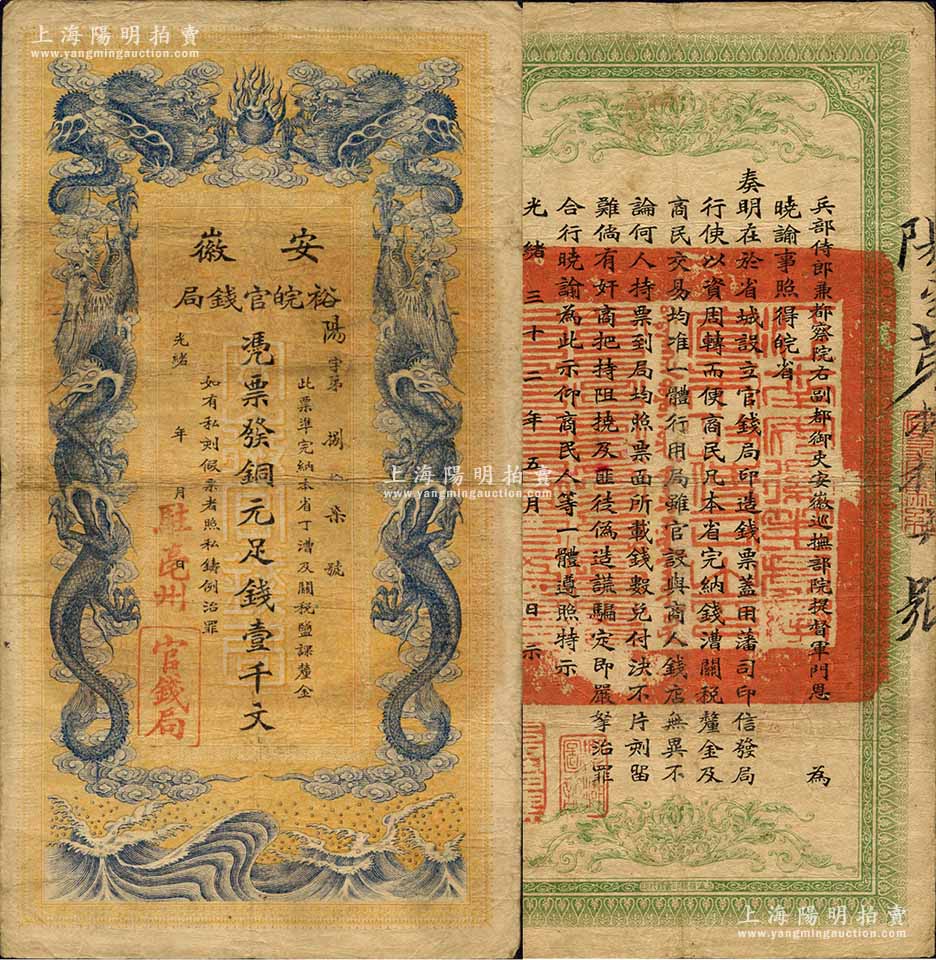 上海陽明拍賣
www.yangmingauction.com
安徽
裕皖官錢局
陽字第捌拾柒號
此票準完納本省丁漕及關稅鹽課釐金
憑票發銅元足錢壹千文
如有私刻假票者照私鑄例治罪
光緒 年 月 日
駐亳州
官錢局
兵部侍郎兼都察院右副都御史安徽巡撫部院提督軍門恩 為
曉諭事照得皖省
奏明在於省城設立官錢局印造錢票蓋用藩司印信發局
行使以資周轉而便商民凡本省完納錢漕關稅釐金及
商民交易均准一體行用局雖官設與商人錢店無異不
論何人持票到局均照票面所載錢數兌付決不片刻留
難倘有奸商把持阻撓及匪徒偽造謊騙定即嚴拏治罪
合行曉諭為此示仰商民人等一體遵照特示
光緒三十二年五月 日示
上海陽明拍賣
www.yangmingauction.com
上海陽明拍賣
www.yangmingauction.com